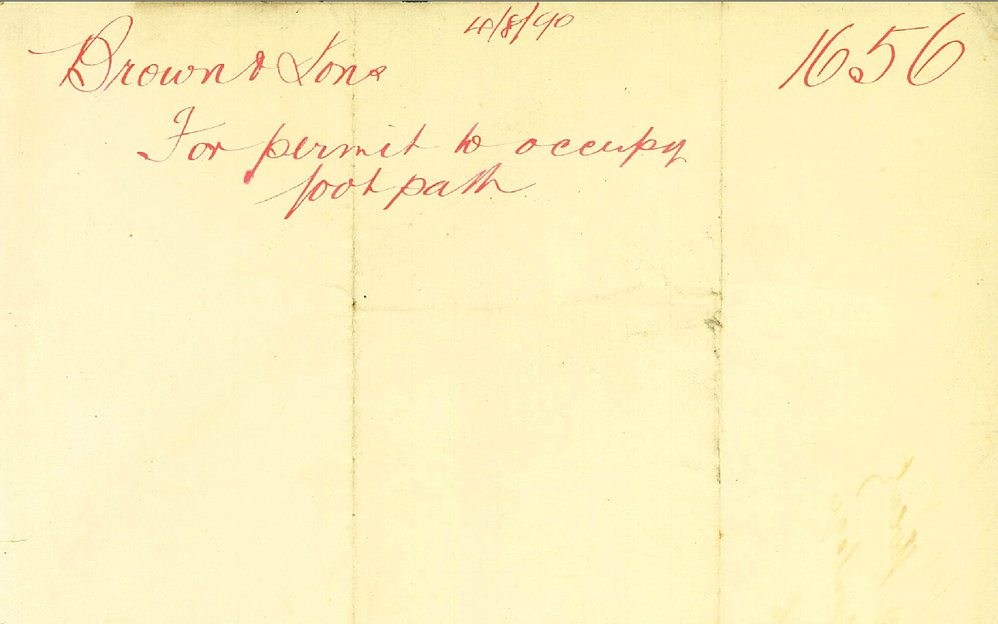 4/8/90
Brown & Sons
1656
For permit to occupy
footpath